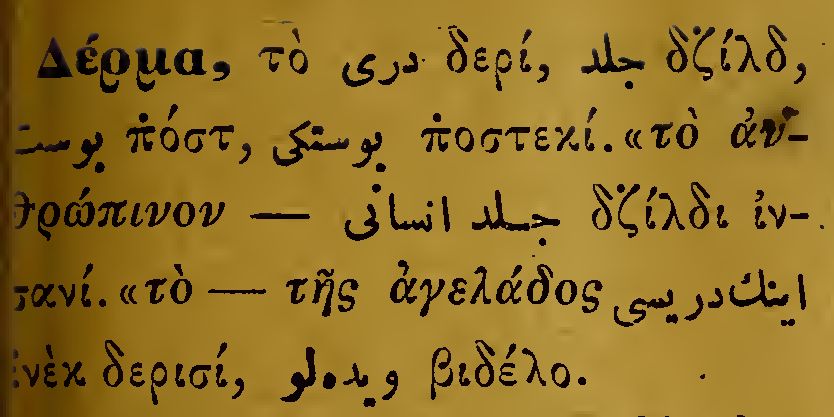 Δέρμα, τὸ درى δερί, جلد δζίλδ,
پوست π̇όστ, پوستكى π̇οστεκί. «τὸ ἀν-
θρώπινον — جلد انسانى δζίλδι ἰν-
σανί. «τὸ — τῆς ἀγελάδος اينك دريسى
ἰνὲκ δερισί, و يدهلو βιδέλο.